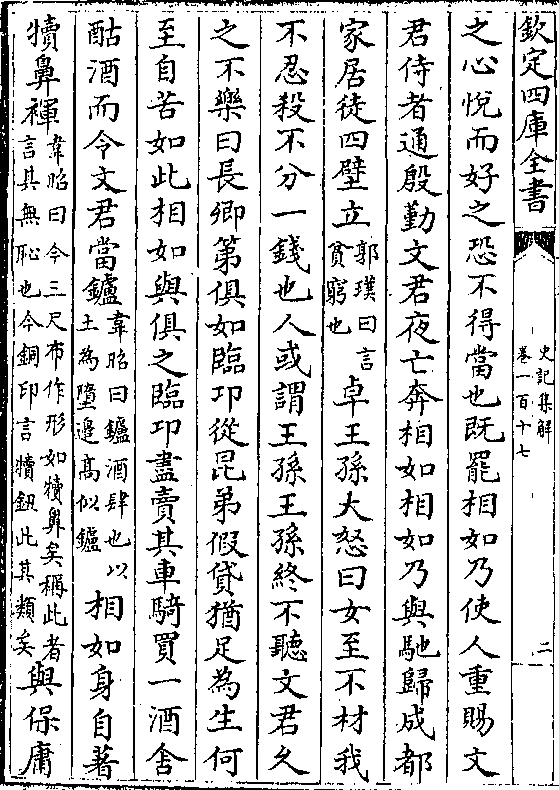 欽定四庫全書
史記集解
卷一百十七
二
之心悅而好之恐不得當也既罷相如乃使人重賜文
君侍者通殷勤文君夜亡奔相如相如乃與馳歸成都
家居徒四壁立郭璞曰言貧窮也卓王孫大怒曰女至不材我
不忍殺不分一錢也人或謂王孫王孫終不聽文君久
之不樂曰長卿第俱如臨邛從昆弟假貸猶足為生何
至自苦如此相如與俱之臨邛盡賣其車騎買一酒舍
酤酒而令文君當鑪韋昭曰鑪酒肆也以土為墮邊高似鑪相如身自著
犢鼻褌韋昭曰今三尺布作形如犢鼻矣稱此者言其無恥也今銅印言犢鈕此其類矣與保庸